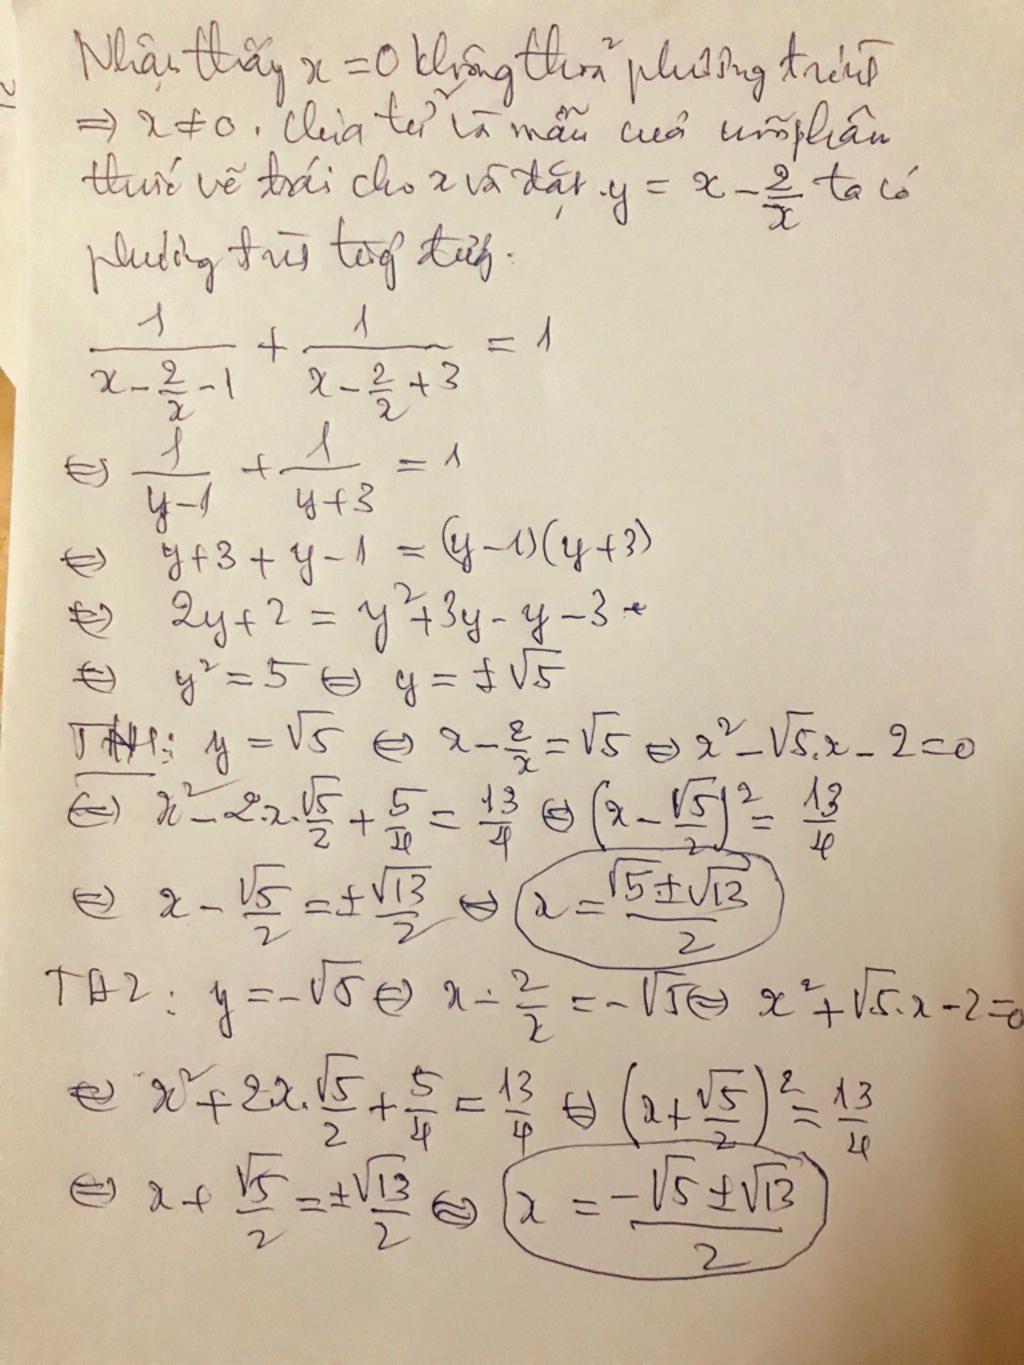 Nhận thấy x = 0 không thoả phương trình
⇒ x ≠ 0. Chia tử và mẫu của mỗi phân
thức vế trái cho x và đặt y = x - 2/x ta có
phương trình tương đương:
1/(x - 2/x - 1) + 1/(x - 2/x + 3) = 1
⇔ 1/(y-1) + 1/(y+3) = 1
⇔ y+3 + y-1 = (y-1)(y+3)
⇔ 2y+2 = y²+3y-y-3
⇔ y² = 5 ⇔ y = ±√5
TH1: y = √5 ⇔ x - 2/x = √5 ⇔ x² - √5.x - 2 = 0
⇔ x² - 2.x.√5/2 + 5/4 = 13/4 ⇔ (x - √5/2)² = 13/4
⇔ x - √5/2 = ±√13/2 ⇔ x = (√5 ± √13)/2
TH2: y = -√5 ⇔ x - 2/x = -√5 ⇔ x² + √5.x - 2 = 0
⇔ x² + 2x.√5/2 + 5/4 = 13/4 ⇔ (x + √5/2)² = 13/4
⇔ x + √5/2 = ±√13/2 ⇔ x = (-√5 ± √13)/2